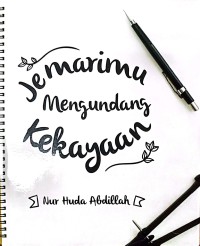 Jemarimu
Mengundang
Kekayaan
Nur Huda Abdillah